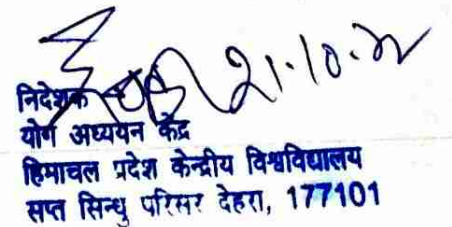 21.10.22
निदेशक
योग अध्ययन केंद्र
हिमाचल प्रदेश केन्द्रीय विश्वविद्यालय
सप्त सिन्धु परिसर देहरा, 177101